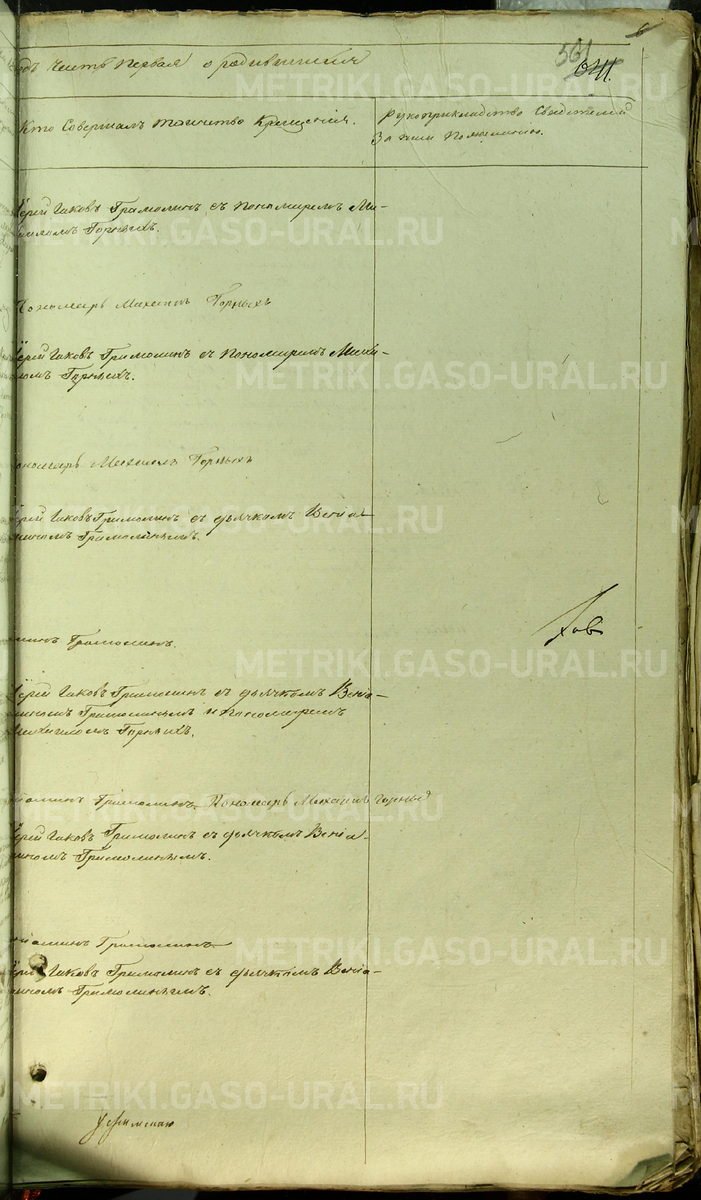 6
561
одъ Часть первая о родившихся
Кто Совершалъ таинство Крещения.
Рукоприкладство Свидетелей
За чим Пожеланию.
Іерей Іаковъ Грамолинъ съ пономаремъ Ми-
хаиломъ Горныхъ.
Пономарь Михаилъ Горныхъ
Іерей Іаковъ Грамолинъ съ пономаремъ Михаи-
ломъ Горныхъ.
пономарь Михаилъ Горныхъ
Іерей Іаковъ Грамолинъ съ дьячкомъ Веніа-
миномъ Грамолинымъ.
минъ Грамолинъ.
Іерей Іаковъ Грамолинъ съ дьячкомъ Венія-
миномъ Грамолинымъ и пономаремъ
Михаиломъ Горныхъ.
хов
іаминъ Грамолинъ Пономарь Михаилъ Горныхъ
Іерей Іаковъ Грамолинъ съ дьячкомъ Веніа-
миномъ Грамолинымъ.
ніаминъ Грамолинъ
Іерей Іаковъ Грамолинъ съ дьячкомъ Веніа-
миномъ Грамолинымъ.
METRIKI.GASO-URAL.RU